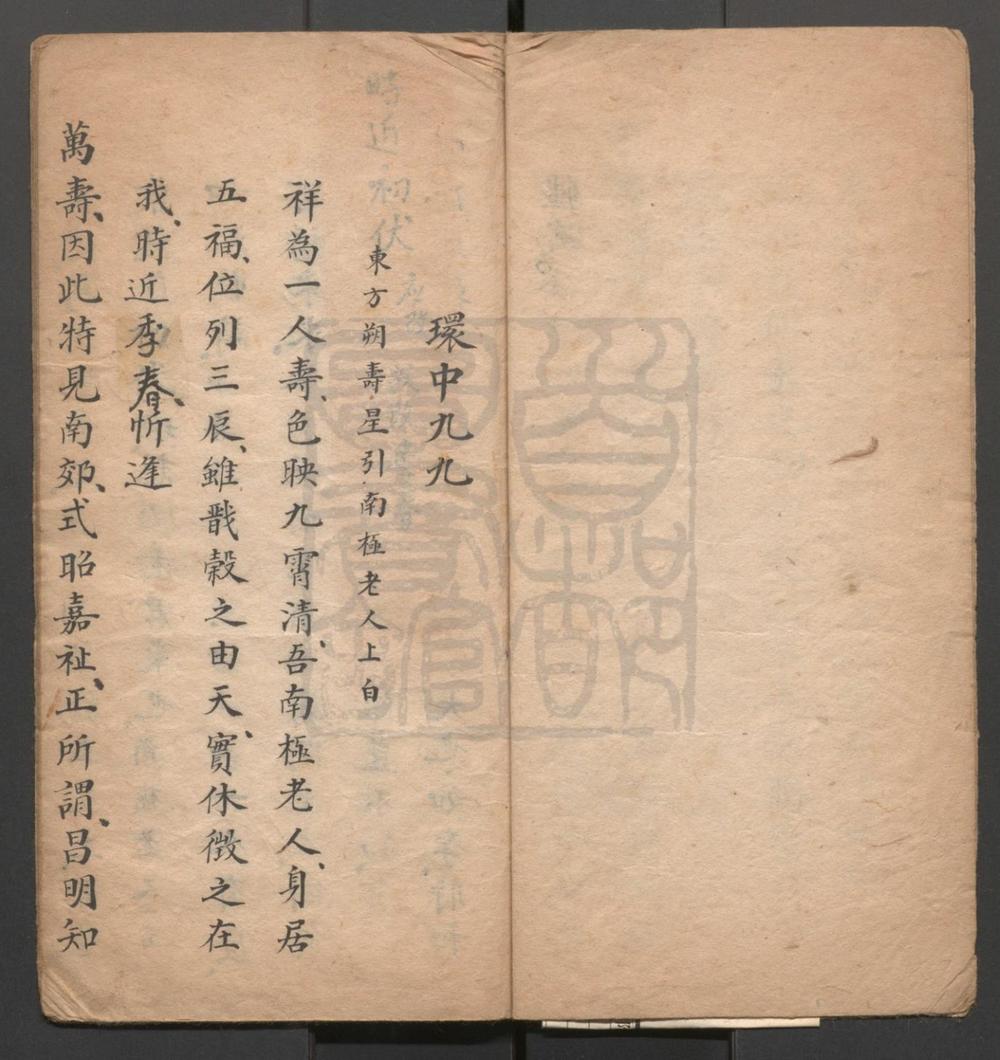 環中九九
東方朔壽星引南極老人上白
祥為一人壽、色映九霄清、吾南極老人、身居
五福、位列三辰、雖戩穀之由天、實休徵之在
我、時近季春、忻逢
萬壽、因此特見南郊、式昭嘉祉、正所謂、昌明知